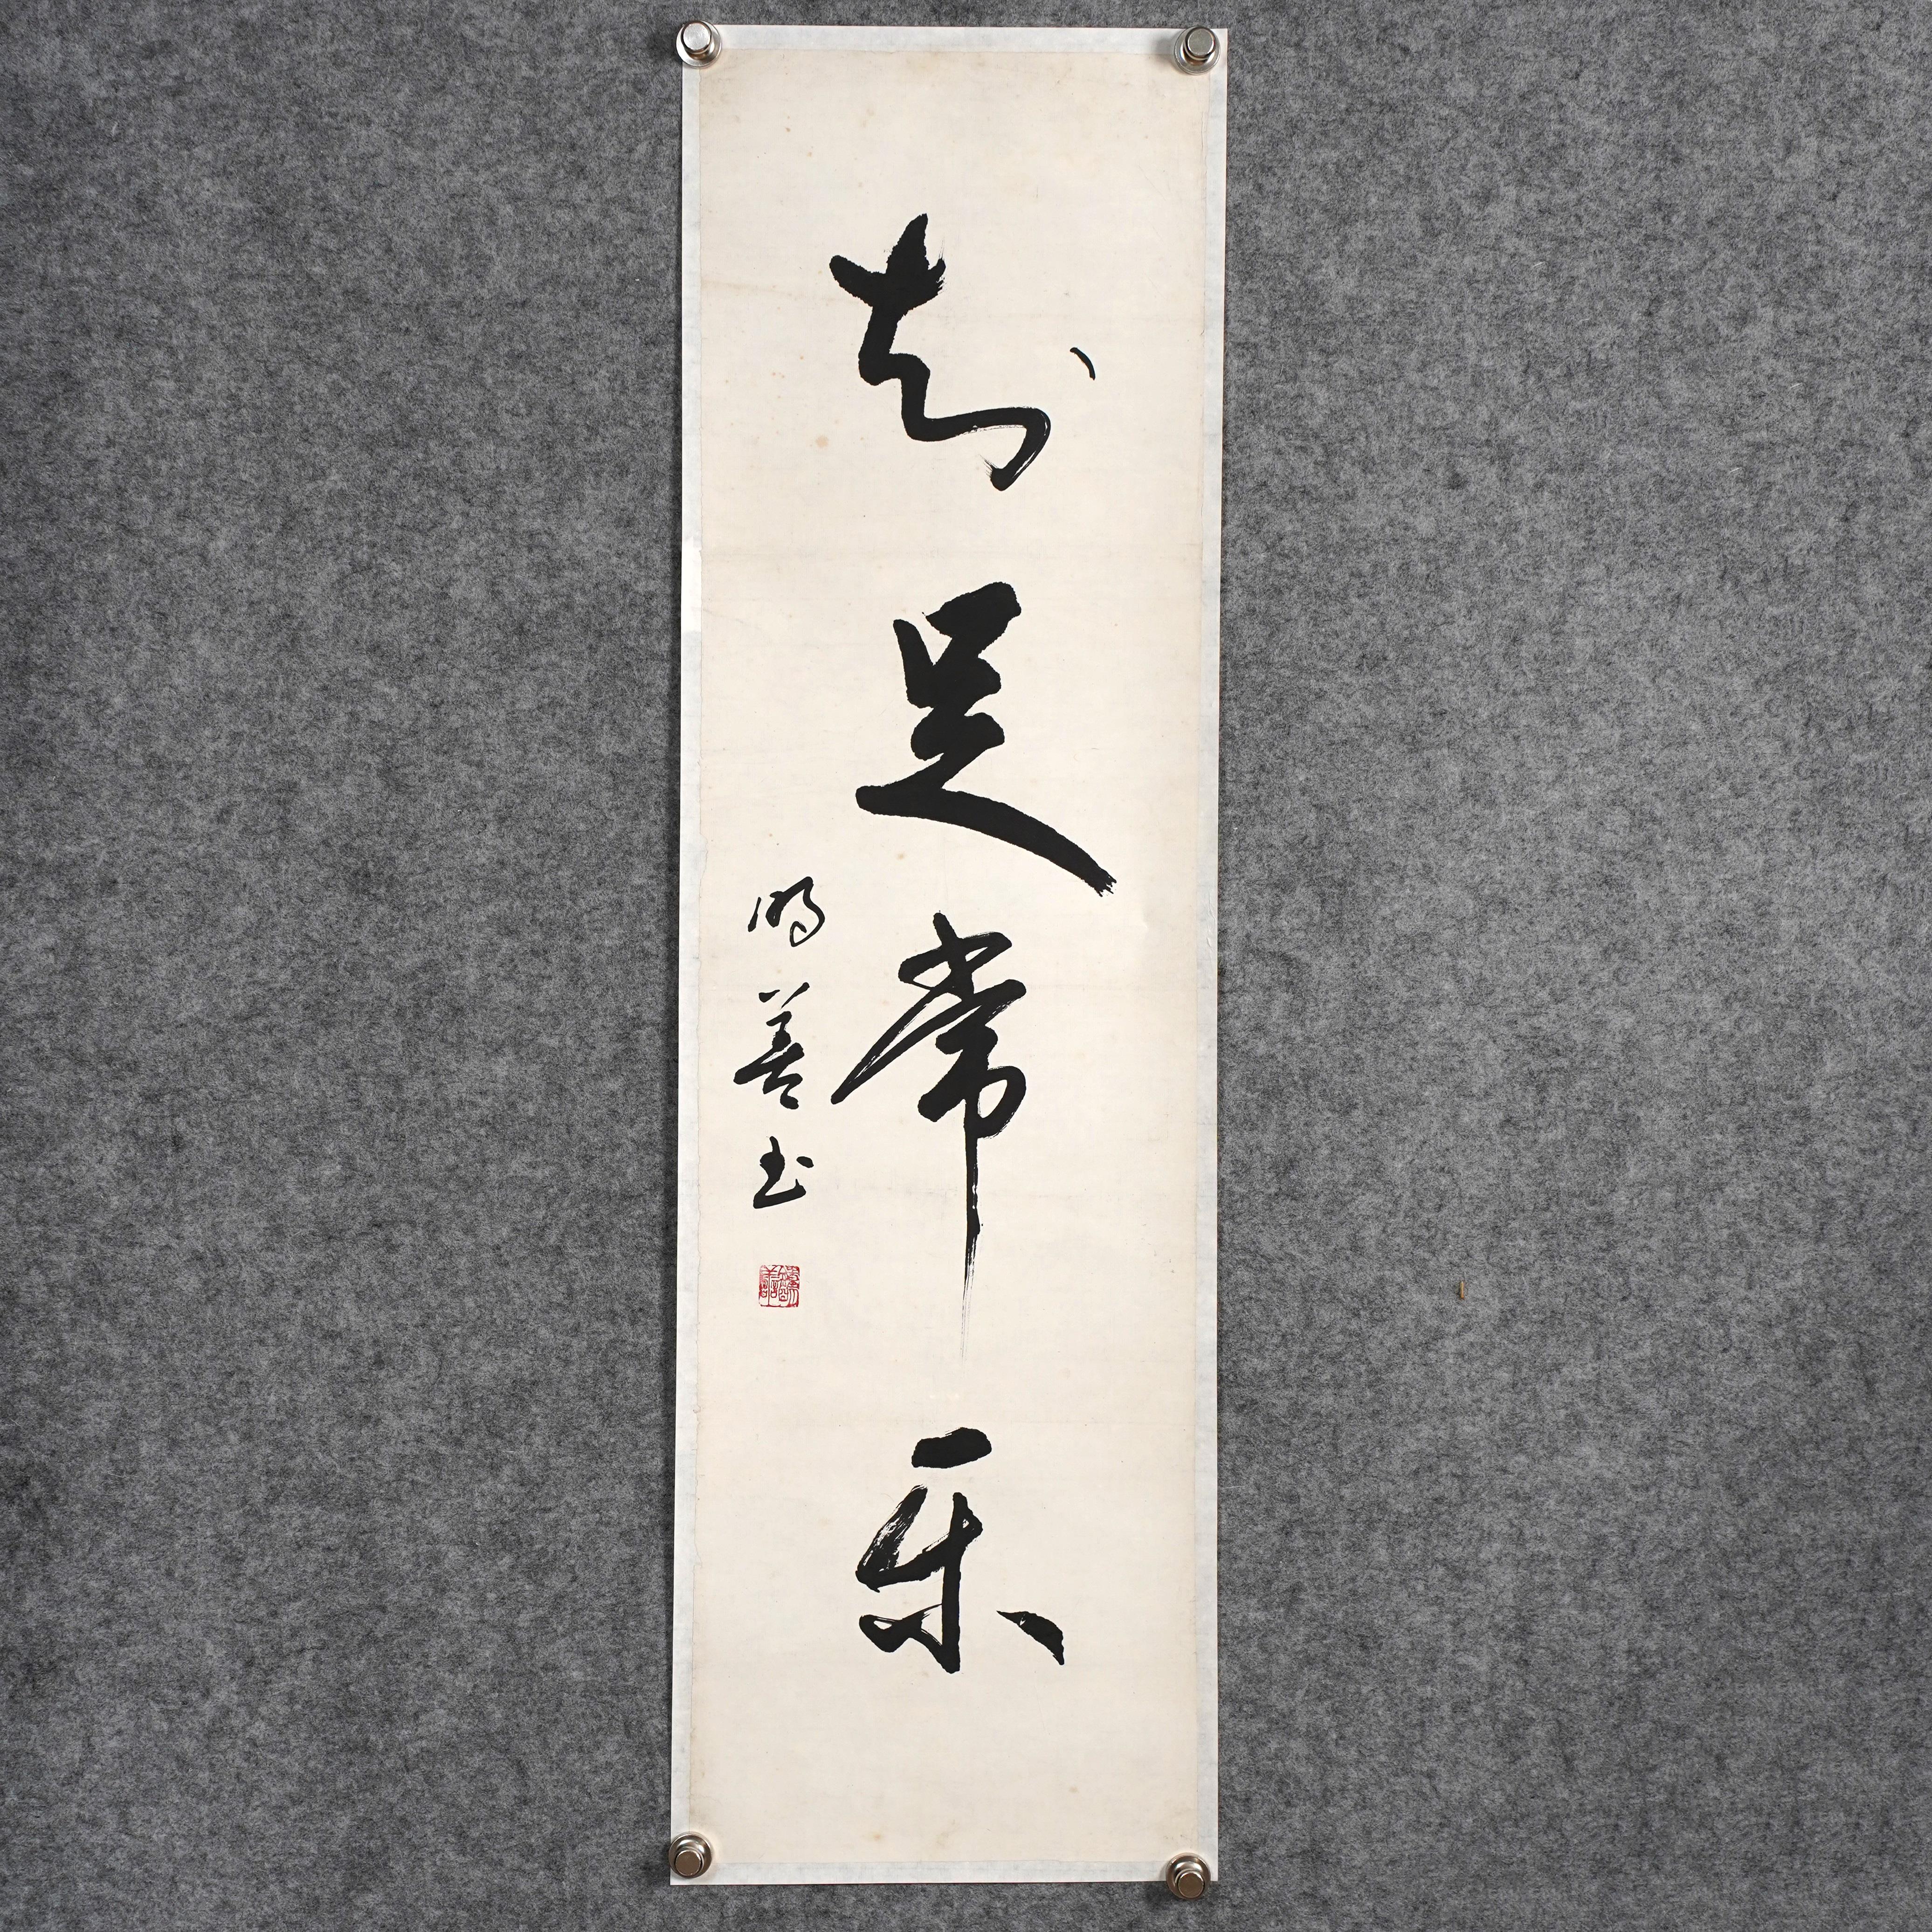 知足常乐
明善书